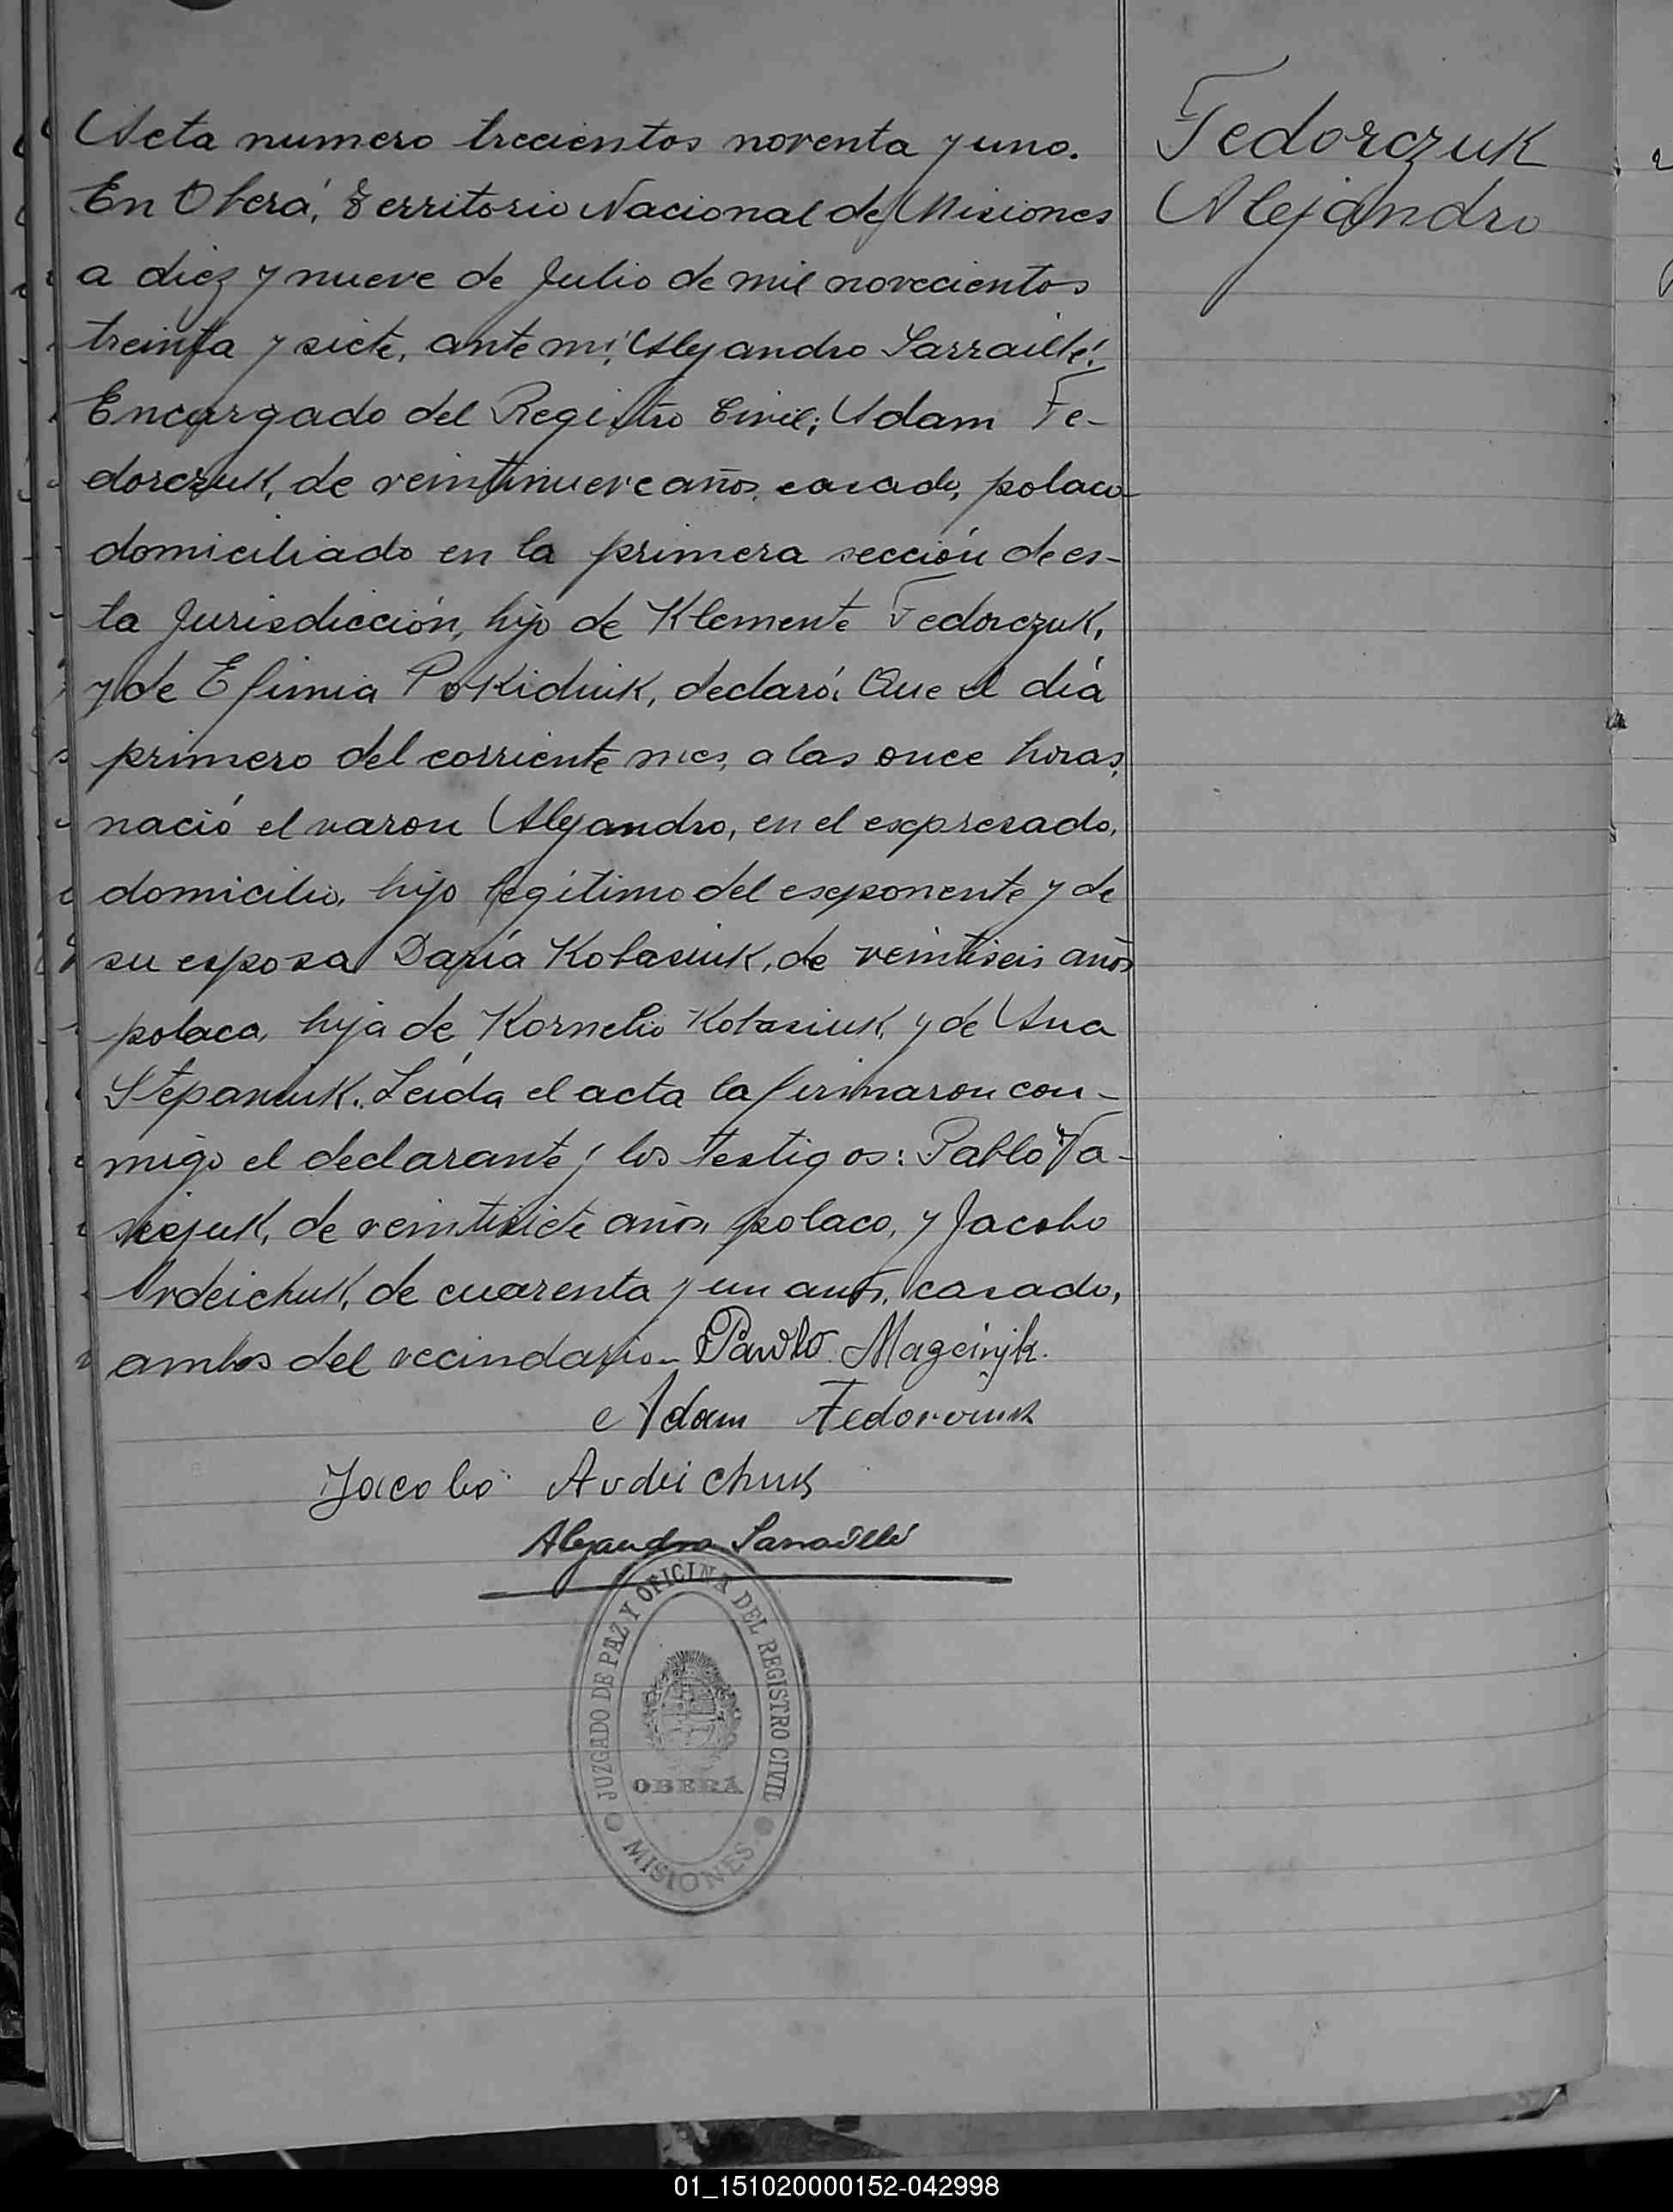 Acta numero trecientos noventa y uno.
En Oberá, Territorio Nacional de Misiones
a diez y nueve de Julio de mil novecientos
treinta y siete, ante mí, Alejandro Sarraillé,
Encargado del Registro Civil; Adam Fe-
dorczuk, de veintinueve años, casado, polaco
domiciliado en la primera sección de es-
ta Jurisdicción, hijo de Klemente Fedorczuk,
y de Efimia Pokidiuk, declaró: Que el día
primero del corriente mes, a las once horas,
nació el varon Alejandro, en el expresado,
domicilio, hijo legítimo del exponente y de
su esposa Daría Kotasiuk, de veintiseis años
polaca, hija de Kornelio Kotasiuk, y de Ana
Stepaniuk. Leída el acta la firmaron con-
migo el declarante y los testigos: Pablo
de veintisiete años, polaco, y Jacobo
Ardeichuk, de cuarenta y un años, casado,
ambos del vecindario.- Pawlo
Adam
Jacobo Avdeichuk
Alejandro Sarraillé
JUZGADO DE PAZ Y OFICINA DEL REGISTRO CIVIL
OBERÁ
MISIONES
Fedorczuk
Alejandro
01_151020000152-042998